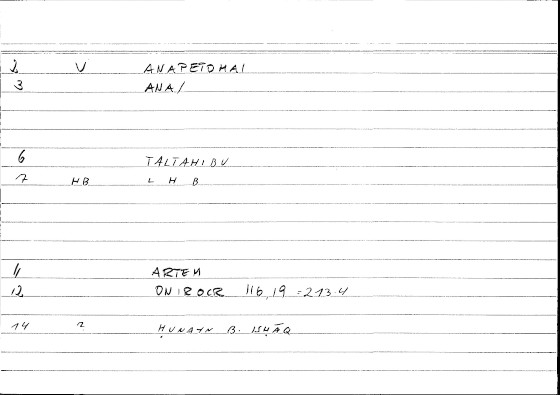 2 V ANAPETOMAI
3 ANA/
6 TALTAHIBU
7 HB L H B
11 ARTEM
12 ONIROCR 116,19 = 213.4
14 2 ḤUNAYN B. ISḤĀQ